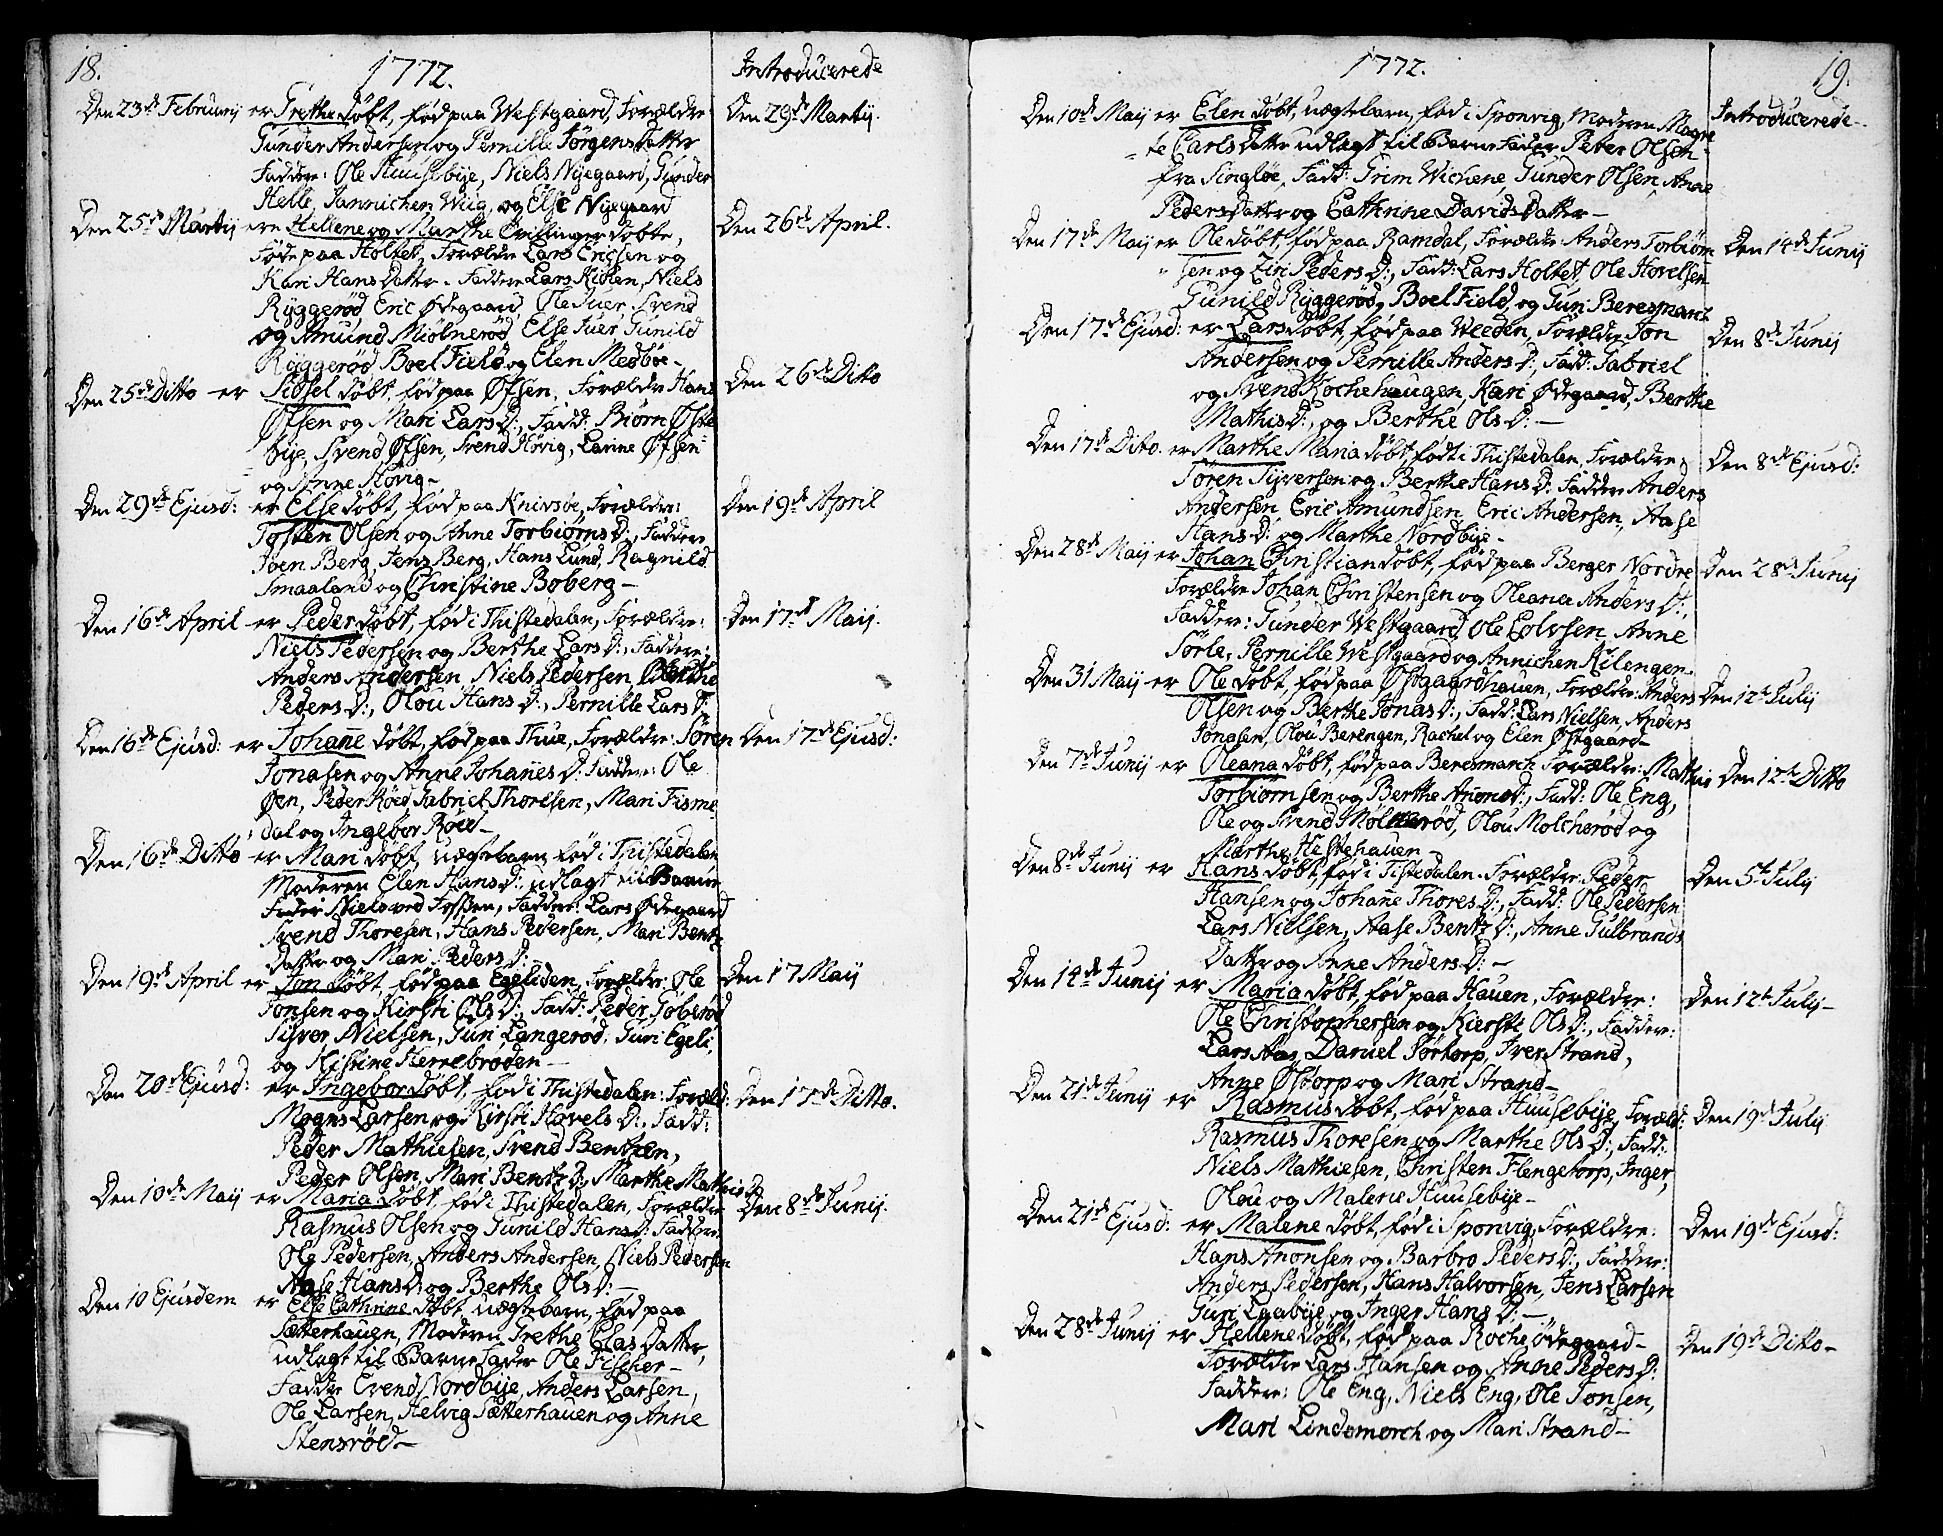 18.
1772.
Introducerede
Den 23de Februarij er Grethe døbt, fød paa Westgaard, Forældre
Gunder Andersen og Pernille Jørgens Datter
Faddere: Ole Huusebije, Niels Nyegaard, Gunder
Helle, Jannichen Wiig, og Else Nyegaard
Den 29de Martij.
Den 25de Martij ere Hellene og Marthe Tvillinger døbte,
Føde paa Holtet, Forældre Lars Ericsen og
Kari Hans Datter. Faddere Lars Kisen, Niels
Ryggerød, Eric Ødegaard, Ole Juer, Svend
og Amund Miølnerød, Else Juer, Gunild
Ryggerød, Boel Field og Elen Medbøe.
Den 26de April.
Den 25de Ditto er Sidsel døbt, fød paa Øfsen, Forældre Hans
Øfsen og Mari Lars D:, Fadd: Biørn Øste
bije, Svend Øfsen, Svend Høvig, Larine Øfsen
og Anne Høvig
Den 26de Ditto
Den 29de Ejusd: er Else døbt, fød paa Knivsøe, Forældre:
Tosten Olsen og Anne Torbiørns D:, Faddere
Joen Berg, Jens Berg, Hans Lund, Ragnild
Smaaland og Christine Boberg
Den 19de April
Den 16de April er Peder døbt, fød i Thistedalen, Forældre:
Niels Pedersen og Berthe Lars D:, Faddere:
Anders Andersen, Niels Pedersen, Berthe
Peders D:, Olou Hans D:, Pernille Lars D:
Den 17de Maij.
Den 16de Ejusd: er Johane døbt, fød paa Thue, Forældre: Søren
Jonasen og Anne Johanes D: Faddere: Ole
Øen, Peder Røed, Gabriel Thoresen, Mari Tisme
dal og Ingebor Røed
Den 17de Ejusd:
Den 16de Ditto er Mari døbt, uægtebarn fød i Thistedalen
Moderen Elen Hans D:, udlagt til Barne
Fader Niels ved Fossen, Faddere: Lars Ødegaard
Svend Thoresen, Hans Pedersen, Mari Bentz
Datter og Mari Peders D:
Den 19de April er Jon døbt, fød paa Egeliden, Forældre: Ole
Jonsen og Kirsti Ols D:, Fadd: Peder Gøberød
Siver Nielsen, Guri Langerød, Guri Egeli,
og Kistine Herrebrøden
Den 17 Maij
Den 20de Ejusd: er Ingebor døbt, fød i Thistedalen: Foræld:
Mogns Larsen og Kirsti Hovels D:, Fadd:
Peder Mathiesen, Svend Bentzen,
Peder Olsen, Mari Bentz D:, Marthe Mathis D:
Den 17de Ditto.
Den 10de Maij er Maria døbt, fød i Thistedalen, Forældre
Rasmus Olsen og Gunild Hans D: Faddere:
Ole Pedersen, Anders Andersen, Niels Pedersen
Aase Hans D: og Berthe Ols D:
Den 8de Junij.
Den 10 Ejusdem er Else Cathrine døbt, uægtebarn, fød paa
Sætterhauen, Moderen Grethe Clas Datter,
udlagt til Barne Fader Ole Fischer
Faddere Evend Nordbije, Anders Larsen,
Ole Larsen, Helvig Sætterhauen og Anne
Stensrød
19.
1772.
Introducerede
Den 10de Maij er Elen døbt, uægtebarn, fød i Sponvig, Moderen Magre
te Carls Datter udlagt til Barne Fader Peter Olsen
fra Singløe, Fadd: Grim Wichene, Gunder Olsen, Anne
Peders Datter og Cathrine Davids Datter
Den 17de Maij er Ole døbt, fød paa Ramdal, Forældre Anders Torbiørn
sen og Ziri Peders D:, Fadd: Lars Holtet, Ole Hovelsen
Gunild Ryggerød, Boel Field og Guri Beresmarc
Den 14de Junij
Den 17de Ejusd: er Lars døbt, fød paa Weeden, Forældre Jon
Andersen og Pernille Anders D:, Fadd: Gabriel
og Svend Kochehaugen, Kari Ødegaard, Berthe
Mathis D:, og Berthe Ols D:
Den 8de Junij
Den 17de Dito. er Marthe Maria døbt, født i Thistedalen, Forældre
Søren Syversen og Berthe Hans D: Faddere Anders
Andersen, Eric Amundsen, Eric Andersen, Aase
Hans D: og Marthe Nordbije
Den 8de Ejusd:
Den 28de Maij er Johan Christian døbt, fød paa Berger Nordre
Forældre Johan Christensen og Oleana Anders D:
Faddere: Gunder Westgaard, Ole Colvsen, Anne
Sørle, Pernille Westgaard og Annichen Kilengen
Den 28de Junij
Den 31 Maij er Ole døbt, fød paa Østgaardhauen, Forældre: Anders
Olsen og Berthe Jonas D:, Fadd: Lars Nielsen, Anders
Jonasen, Olou Berengen, Rachel og Elen Østgaard
Den 12te Julij
Den 7de Junij er Oleana døbt, fød paa Beresmarch Forældre: Mathis
Torbiørnsen og Berthe Anons D:, Fadd: Ole Eng,
Ole og Svend Mølcherød, Olou Molcherød og
Marthe Hestehauen
Den 12te Ditto
Den 8de Junij er Hans døbt, fød i Tistedalen. Forældre: Peder
Hansen og Johane Thores D:, Fadd: Ole Pedersen
Lars Nielsen, Aase Bentz D:, Anne Gulbrands
Datter og Anne Anders D:
Den 5te Julij
Den 14de Junij er Maria døbt, fød paa Hauen, Forældre:
Ole Christophersen og Kiersti Ols D:, Faddere:
Lars Aas, Daniel Sørtorp, Iver Strand,
Anne Østorp og Mari Strand
Den 12te Julij
Den 21de Junij er Rasmus døbt, fød paa Huusebije, Foræld:
Rasmus Thoresen og Marthe Ols D:, Fadd:
Niels Mathiesen, Christen Flengetorp, Inger,
Olou og Malene Huusebije
Den 19de Julij
Den 21de Ejusd: er Malene døbt, fød i Sponvig, Forældre:
Hans Anonsen og Barbro Peders D:, Faddere:
Anders Pedersen, Hans Halvorsen, Jens Larsen
Guri Laabije og Inger Hans D:
Den 19de Ejusd:
Den 28de Junij er Hellene døbt, fød paa Rocheødegaard
Forældre Lars Hansen og Anne Peders D:
Faddere: Ole Eng, Niels Eng, Ole Jonsen,
Mari Lindemarch og Mari Strand
Den 19de Ditto